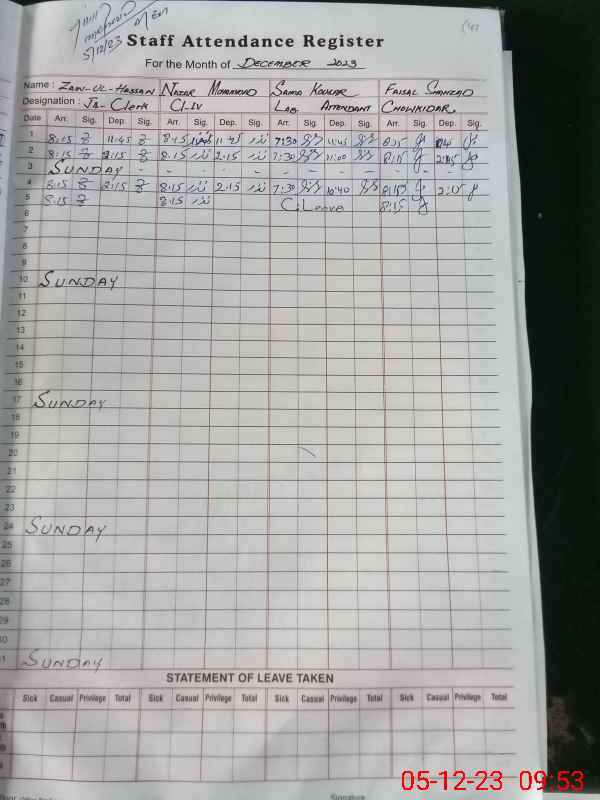 5/12/23
Staff Attendance Register
For the Month of DECEMBER 2023
Name : ZAIN-UL-HASSAN NAZAR MOHAMMAD SAIMA KOUSAR FAISAL SHAHZAD
Designation : JR-Clerk CL IV LAB ATTENDANT CHOWKIDAR
Date Arr. Sig. Dep. Sig. Arr. Sig. Dep. Sig. Arr. Sig. Dep. Sig. Arr. Sig. Dep. Sig.
1 8:15 11:45 8:15 نذر 11:45 نذر 7:30 11:45 8:15
2 8:15 2:15 8:15 نذر 2:15 نذر 7:30 11:00 8:15 2:15
3 SUNDAY - - - - - - - - - - - -
4 8:15 2:15 8:15 نذر 2:15 نذر 7:30 10:40 8:15 2:15
5 8:15 8:15 نذر C.Leave 8:15
6
7
8
9
10 SUNDAY
11
12
13
14
15
16
17 SUNDAY
18
19
20
21
22
23
24 SUNDAY
25
26
27
28
29
30
31 SUNDAY
STATEMENT OF LEAVE TAKEN
Sick Casual Privilege Total Sick Casual Privilege Total Sick Casual Privilege Total Sick Casual Privilege Total
Signature
05-12-23 09:53